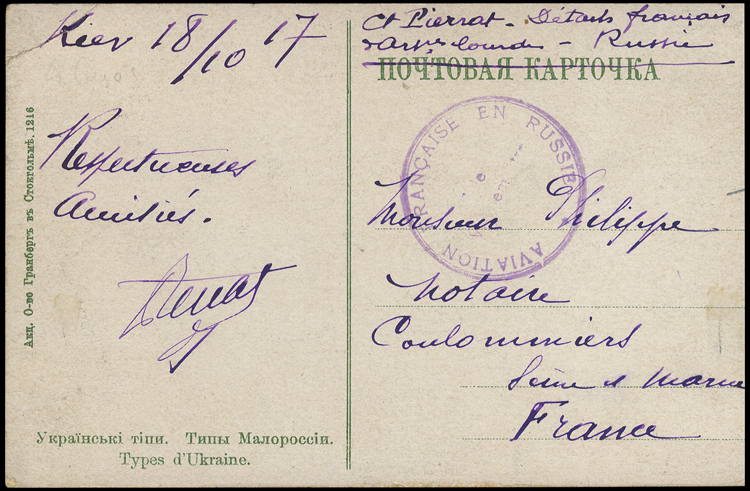 Kiev 18/10 17
Respectueuses
Amitiés.
Ct Pierrat - Détachts français
d'Artie lourde - Russie
ПОЧТОВАЯ КАРТОЧКА
AVIATION FRANÇAISE EN RUSSIE
Monsieur Philippe
Notaire
Coulommiers
Seine & Marne
France
Акц. О-во Гранбергъ въ Стокгольмѣ. 1216
Українські тіпи. Типы Малороссіи.
Types d'Ukraine.